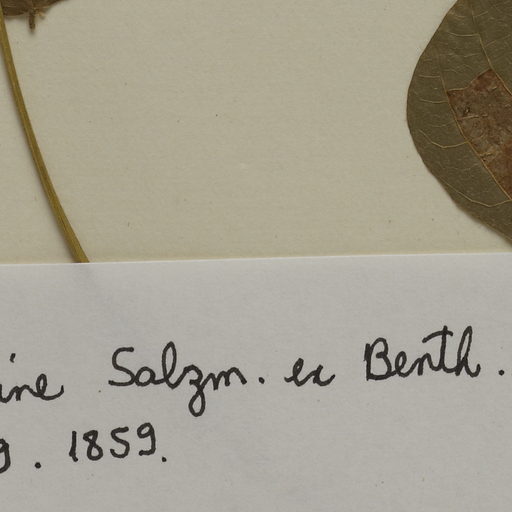 ine Salzm. ex Benth.
g. 1859.